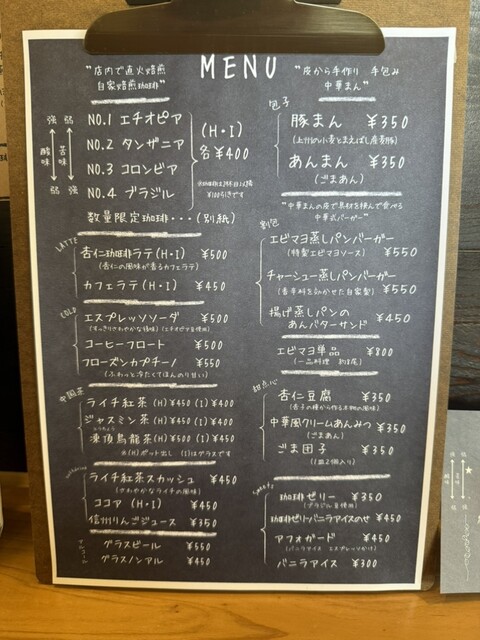 MENU
"店内で直火焙煎
自家焙煎珈琲"
強 弱
酸味 苦味
弱 強
NO.1 エチオピア
NO.2 タンザニア
NO.3 コロンビア
NO.4 ブラジル
(H・I)
各¥400
※珈琲2杯目以降
¥100引きです
数量限定珈琲・・・(別紙)
LATTE
杏仁珈琲ラテ(H・I) ¥500
(杏仁の風味が香るカフェラテ)
カフェラテ(H・I) ¥450
COLD
エスプレッソソーダ ¥500
(すっきりさわやかな後味)(エチオピア使用)
コーヒーフロート ¥500
フローズンカプチーノ ¥550
(ふわっと冷たくてほんのり甘い)
中国茶
ライチ紅茶(H)¥450(I)¥400
ジャスミン茶(H)¥500(I)¥450
凍頂烏龍茶(H)¥500(I)¥450
※(H)ポット出し (I)はグラスです
ライチ紅茶スカッシュ ¥450
(さわやかなライチの風味)
ココア(H・I) ¥450
信州りんごジュース ¥350
グラスビール ¥550
グラスノンアル ¥450
"皮から手作り 手包み
中華まん"
包子
豚まん ¥350
(上州の小麦とまえばし産麦豚)
あんまん ¥350
(ごまあん)
"中華まんの皮で具材を挟んで食べる
中華式バーガー"
割包
エビマヨ蒸しパンバーガー
(特製エビマヨソース) ¥550
チャーシュー蒸しパンバーガー
(香辛料を効かせた自家製) ¥550
揚げ蒸しパンの
あんバターサンド ¥450
エビマヨ単品 ¥800
(一品料理 約8尾)
甜点心
杏仁豆腐 ¥350
(杏子の種から作る本物の風味)
中華風クリームあんみつ ¥350
(ごまあん)
ごま団子 ¥350
(1皿2個入り)
Sweets
珈琲ゼリー ¥350
(ブラジル豆使用)
珈琲ゼリーバニラアイスのせ ¥450
アフォガード ¥450
(バニラアイス エスプレッソがけ)
バニラアイス ¥300